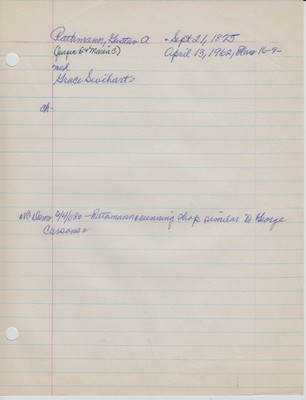 Rathmann, Gustav A - Sept 21, 1875
(Jurgen & Maria C.) April 13, 1962, Plus 16-9-
md
Grace Swihart
ch-
4/4/1980 - Rathmann running shop similar to George
Carson